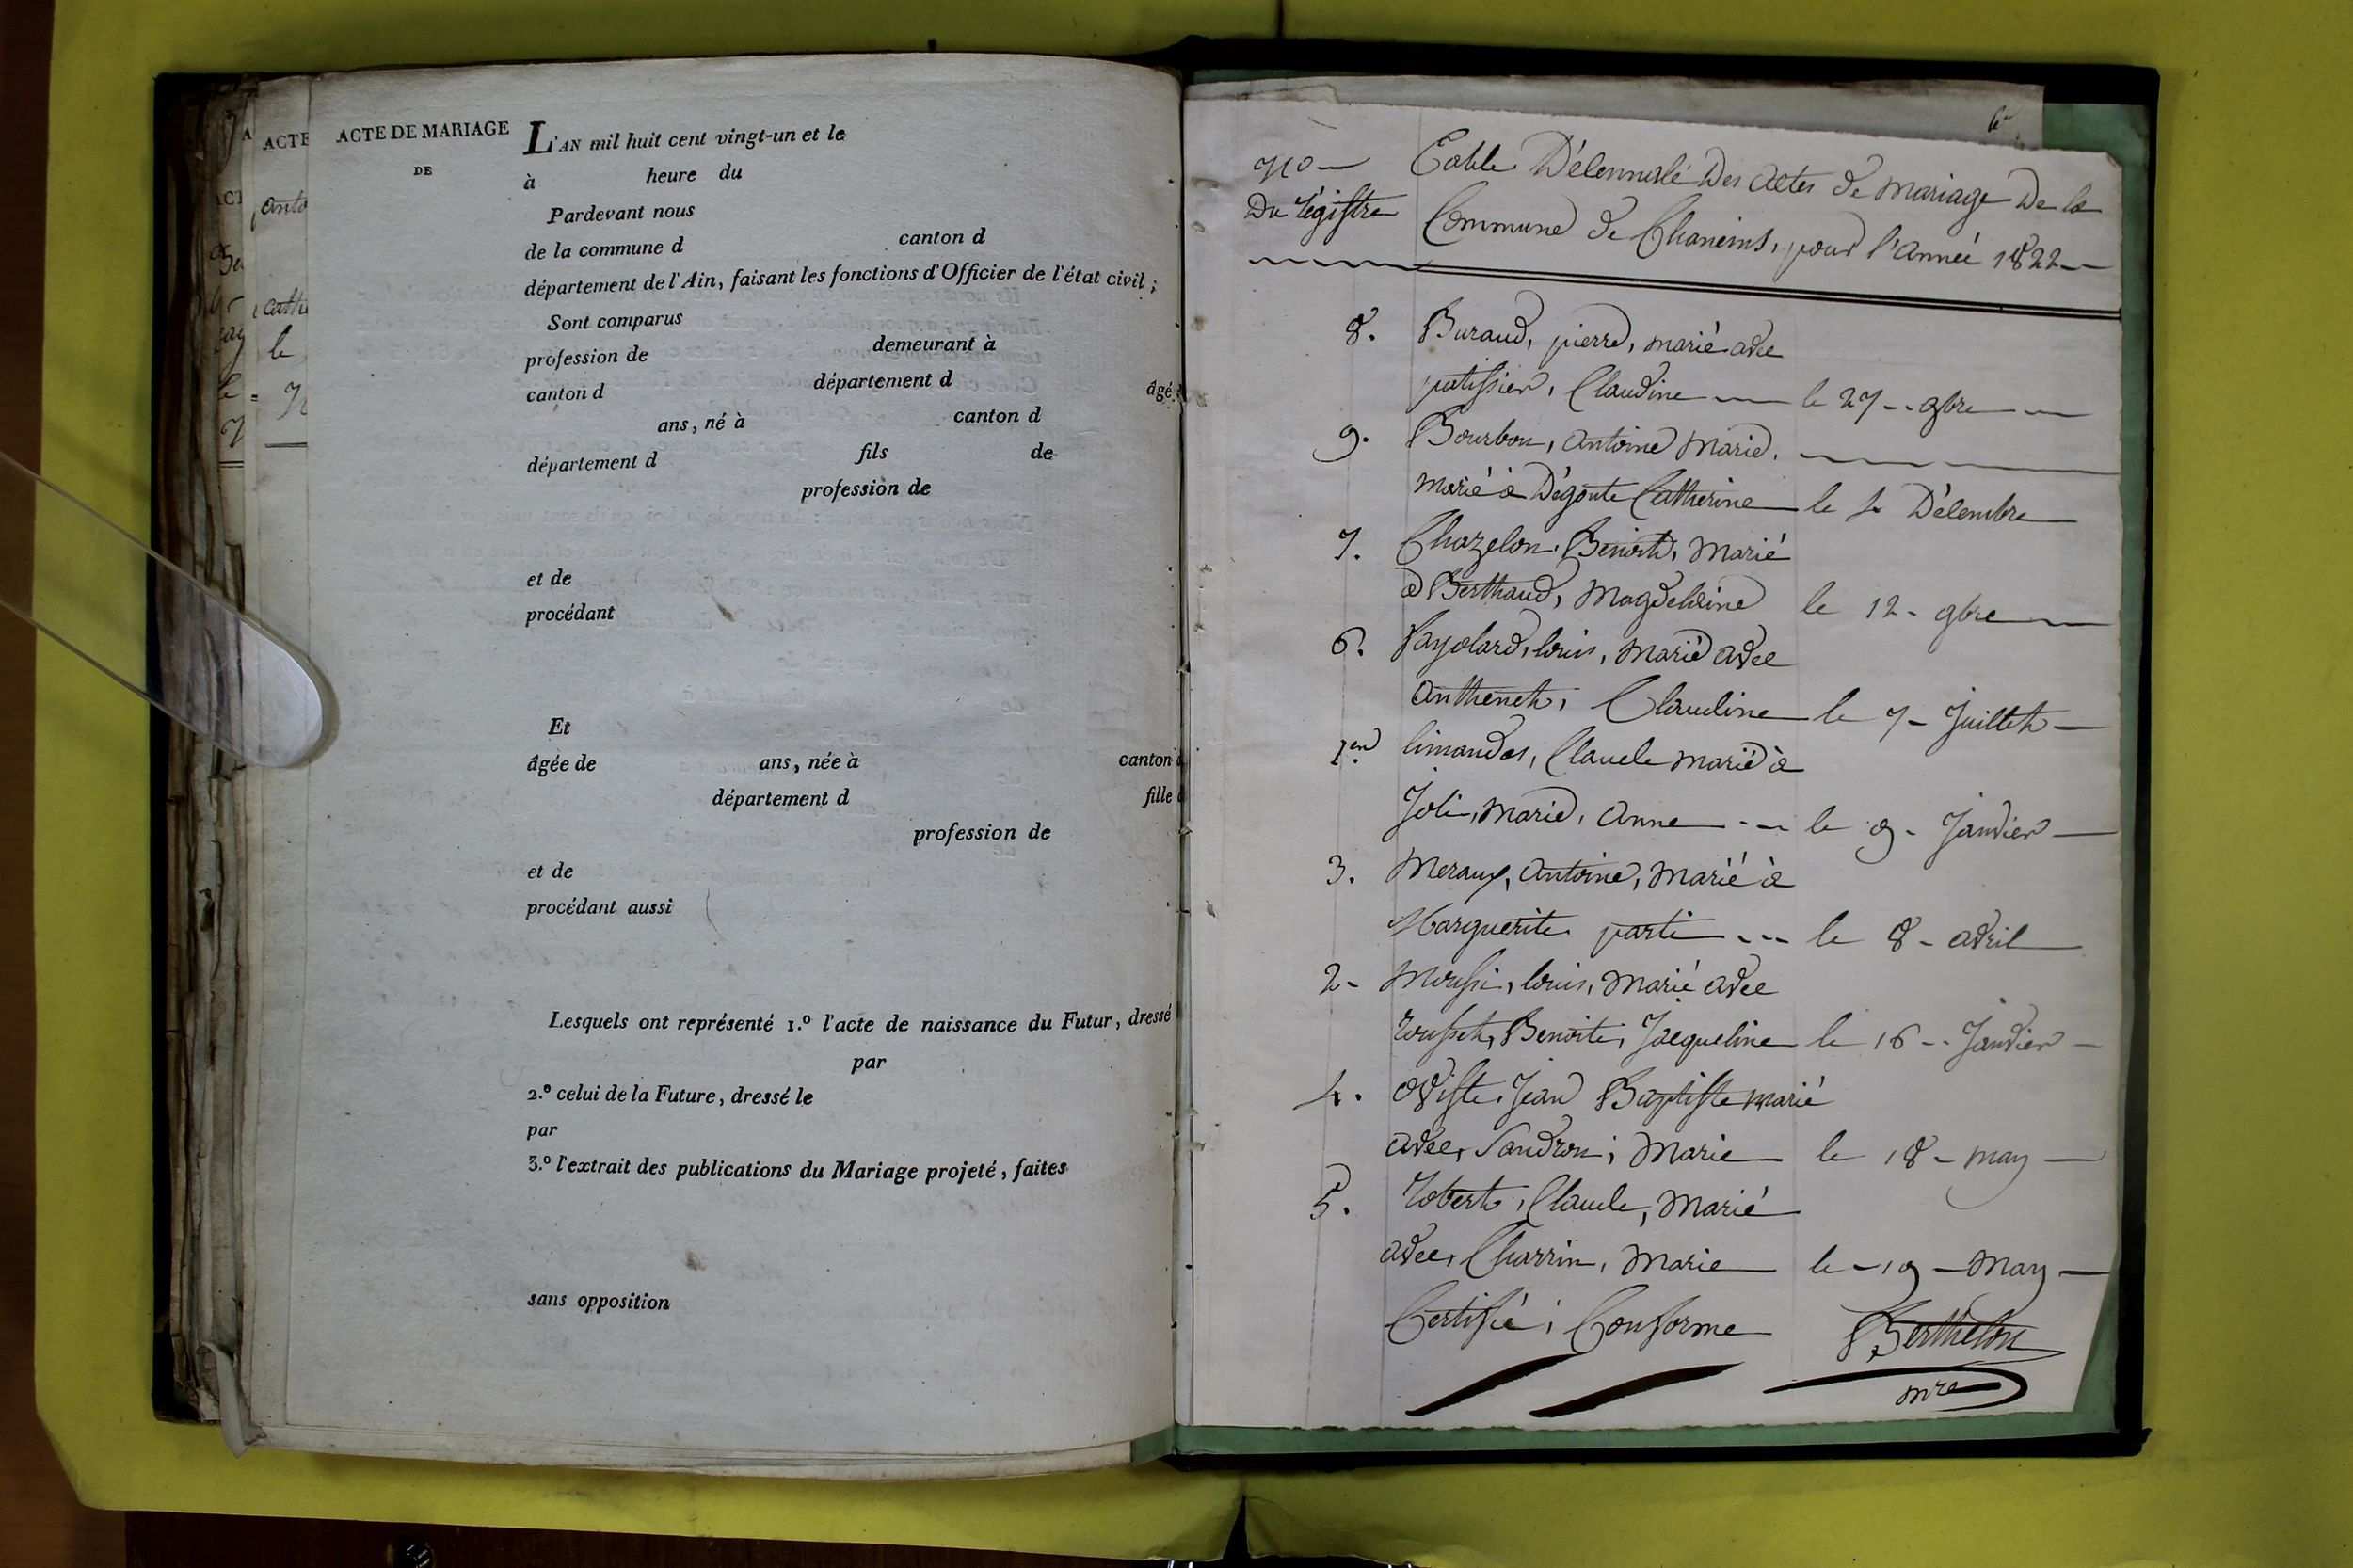 ACTE DE MARIAGE
DE
L'AN mil huit cent vingt-un et le
à heure du
Pardevant nous
de la commune d canton d
département de l'Ain, faisant les fonctions d'Officier de l'état civil ;
Sont comparus
profession de demeurant à
canton d département d âgé
ans, né à canton d
département d fils de
profession de
et de
procédant
Et
âgée de ans, née à canton
département d fille
profession de
et de
procédant aussi
Lesquels ont représenté 1.º l'acte de naissance du Futur, dressé
par
2.º celui de la Future, dressé le
par
3.º l'extrait des publications du Mariage projeté, faites
sans opposition
ACTE
anto
cath
le
nº Table Décennale Des Actes de Mariage De la
Du régistre Commune de Chaneins, pour l'année 1822
8. Buraud, pierre, marié avec
patissier, Claudine le 27 9bre
9. Bourbon, antoine Marie,
marié à Dégoute Catherine le 4 Décembre
7. Chazelon, Benoit, Marié
à Berthaud, Magdelaine le 12 - 9bre
6. Fayolard, louis, Marié avec
anthenet, Claudine le 7 - Juillet
1er limandas, Claude marié à
Joli, Marie, Anne le 9 - Janvier
3. Meraux, antoine, Marié à
Marguerite parti le 8 - avril
2 - Moussi, louis, Marié avec
rousset, Benoite, Jacqueline le 16 - Janvier
4. Oviste Jean Baptiste marié
avec, Sandron, Marie le 18 - may
5. Robert, Claude, Marié
avec, Charrin, Marie le - 19 - May
Certifié, Conforme Berthelon
mre